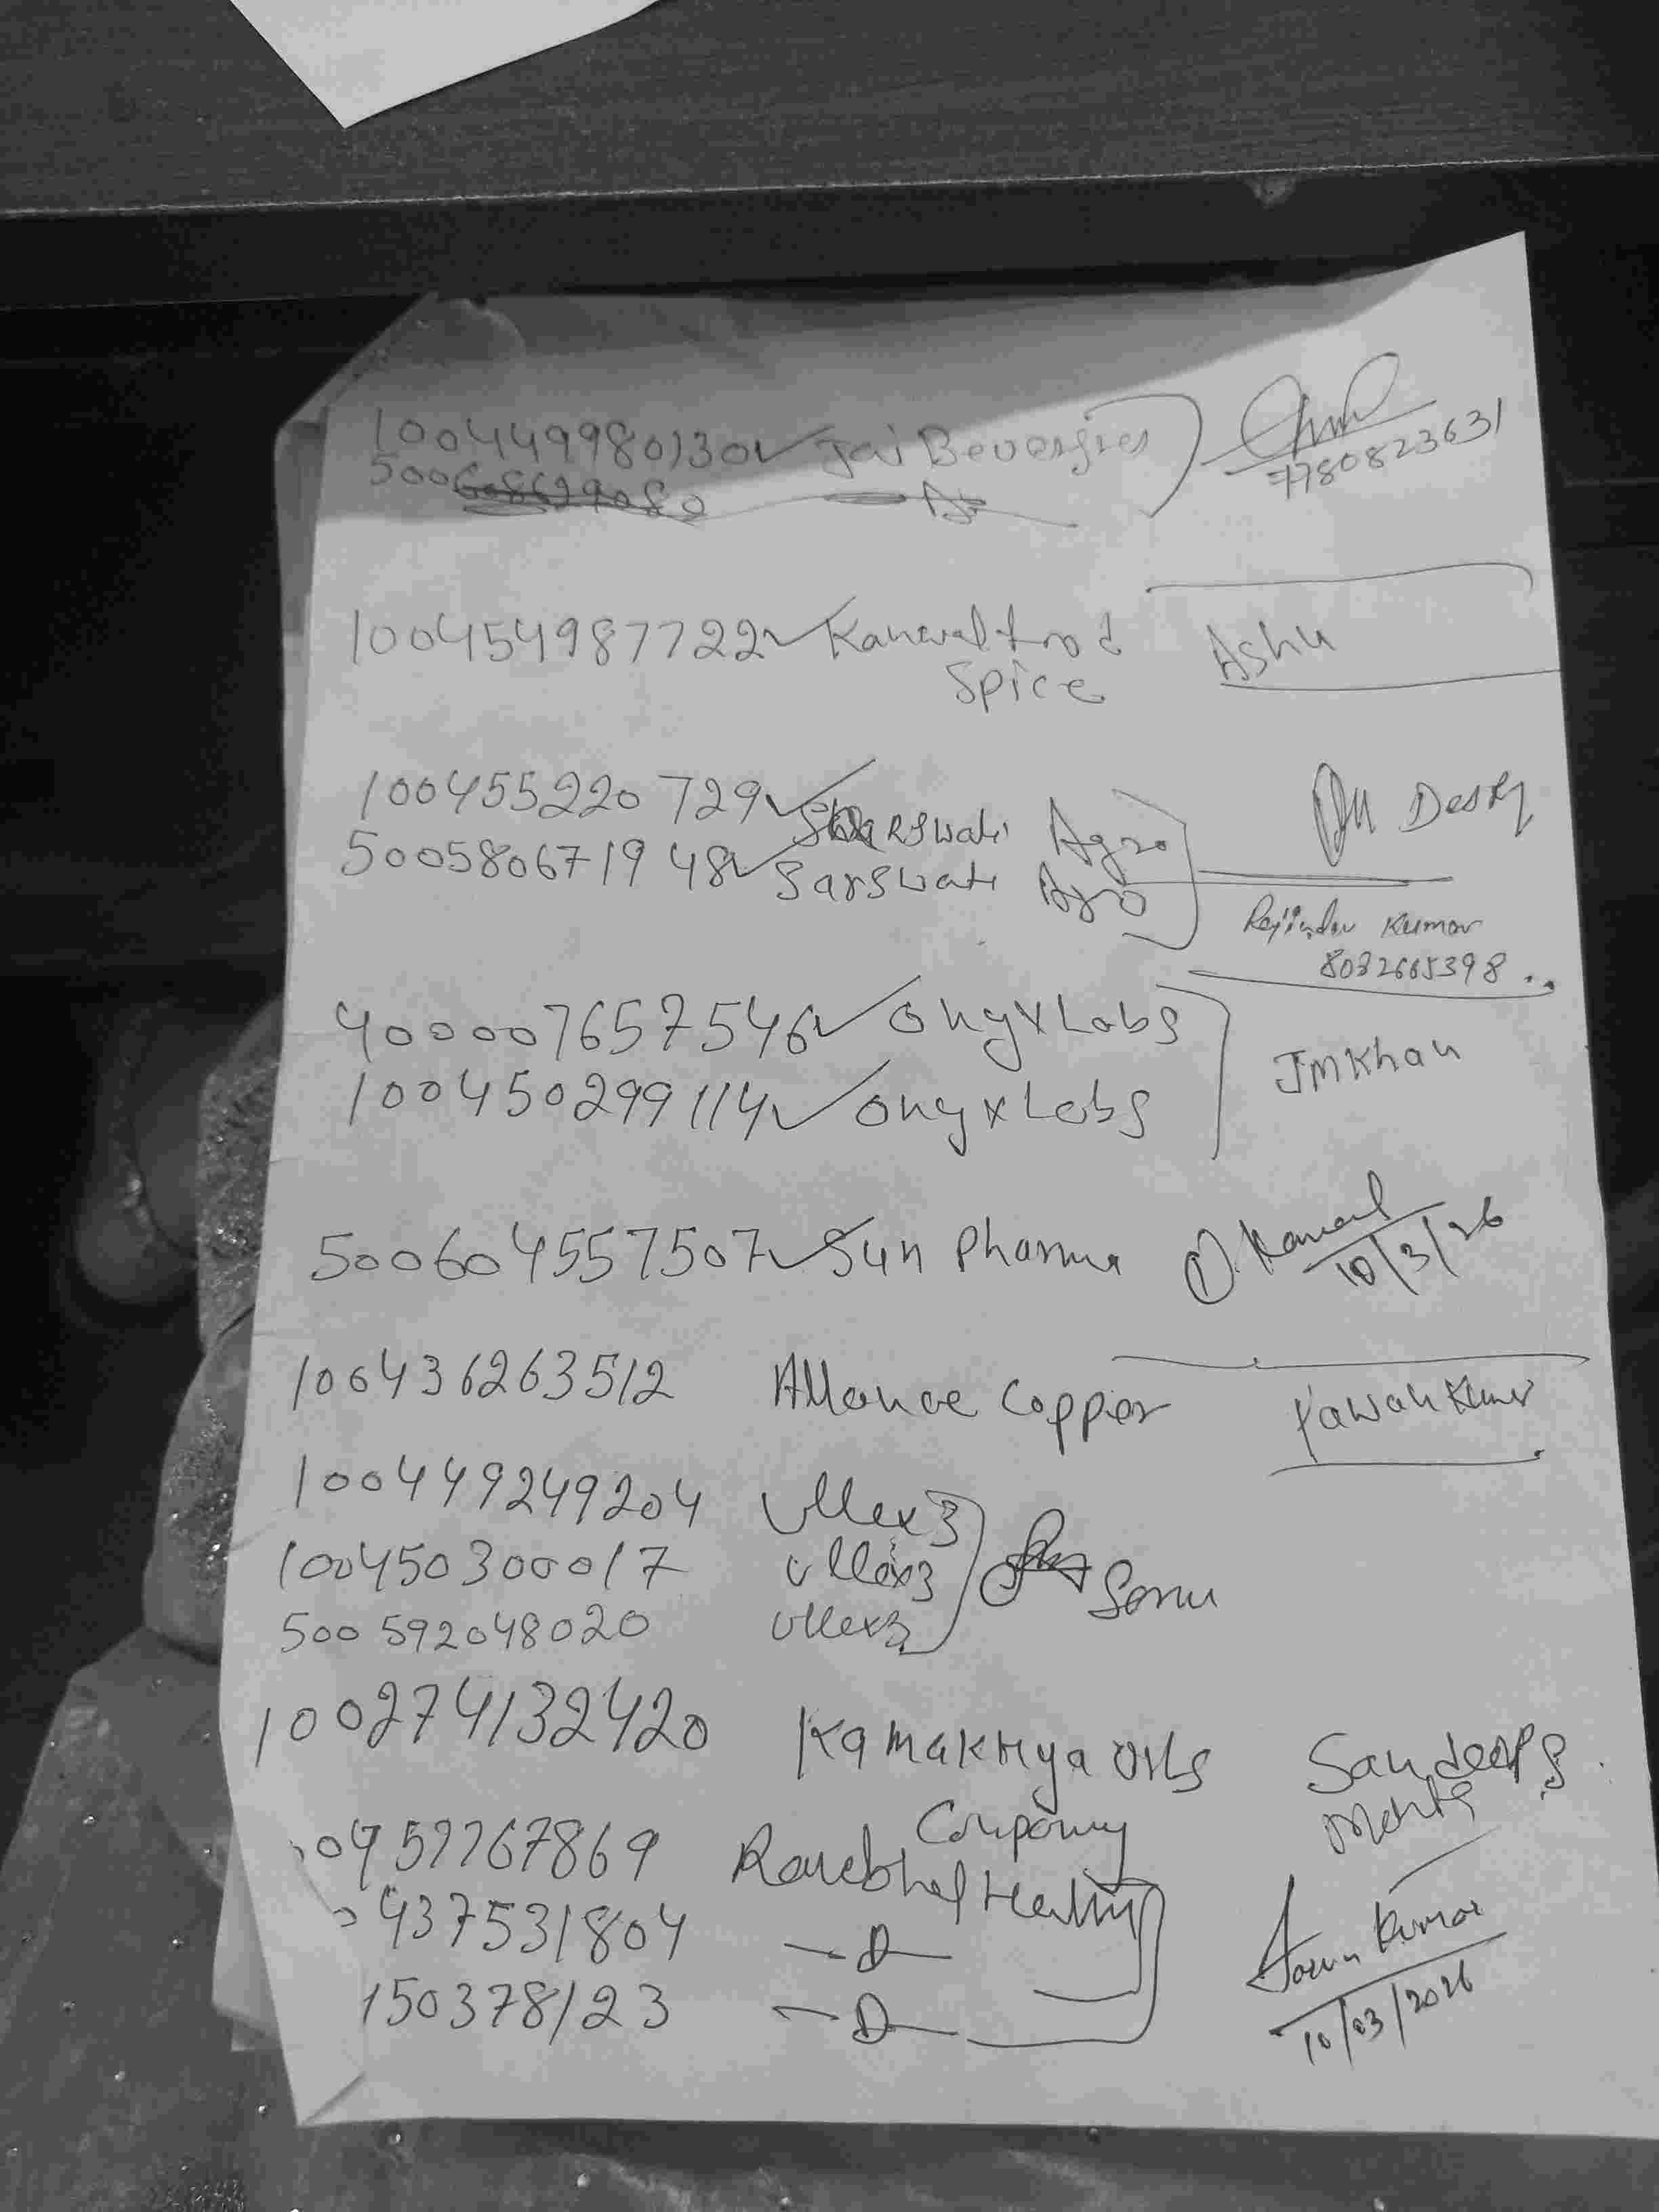 100449980130✓ Jai Bevergies
7780823631
500608629080
100454987722✓ Kanwal food
Spice
Ashu
100455220729✓ Sarswati Agro
500580671948✓ Sarswati Agro
Desk
Rajinder Kumar
8082605398
400007657546✓ OnyxLabs
100450299114✓ OnyxLabs
JMKhan
500604557507✓ Sun Pharma
D. Kanwal
10/3/26
100436263512 Allance Copper
Pawan Kumar
100449249204 Ullex3
100450300017 Ullex3
500592048020 Ullex3
Sonu
100274132420 Kamakhya Oils
Company
Sandeep S.
Mehta
0457767869 Healthy
437531804 —D—
150378123 —D—
Kumar
10/03/2026